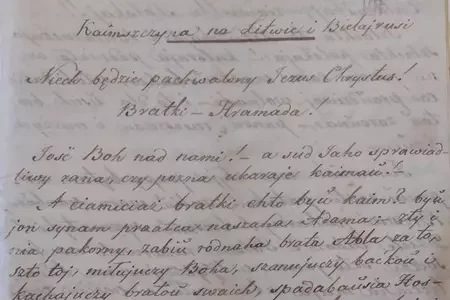 Kaimszczyna na Litwie i Białejrusi
Niech będzie pachwalany Jezus Chrystus!
Bratki – Hramada!
Jość Boh nad nami! – a sud Jaho sprawiad-
liwy zaƞa, czy pozna ukaraje kaimaŭ! –
A ciamiciaż bratki chto byŭ kaim? byŭ
jon synam praatca naszaha Adama; – zły i
nia pakorny, zabiŭ rodnaha brata Abla za to,
szto toj, miłujuczy Boha, szanujuczy baćkoŭ i
kachajuczy bratoŭ swaich, spadabaŭsia Hos-